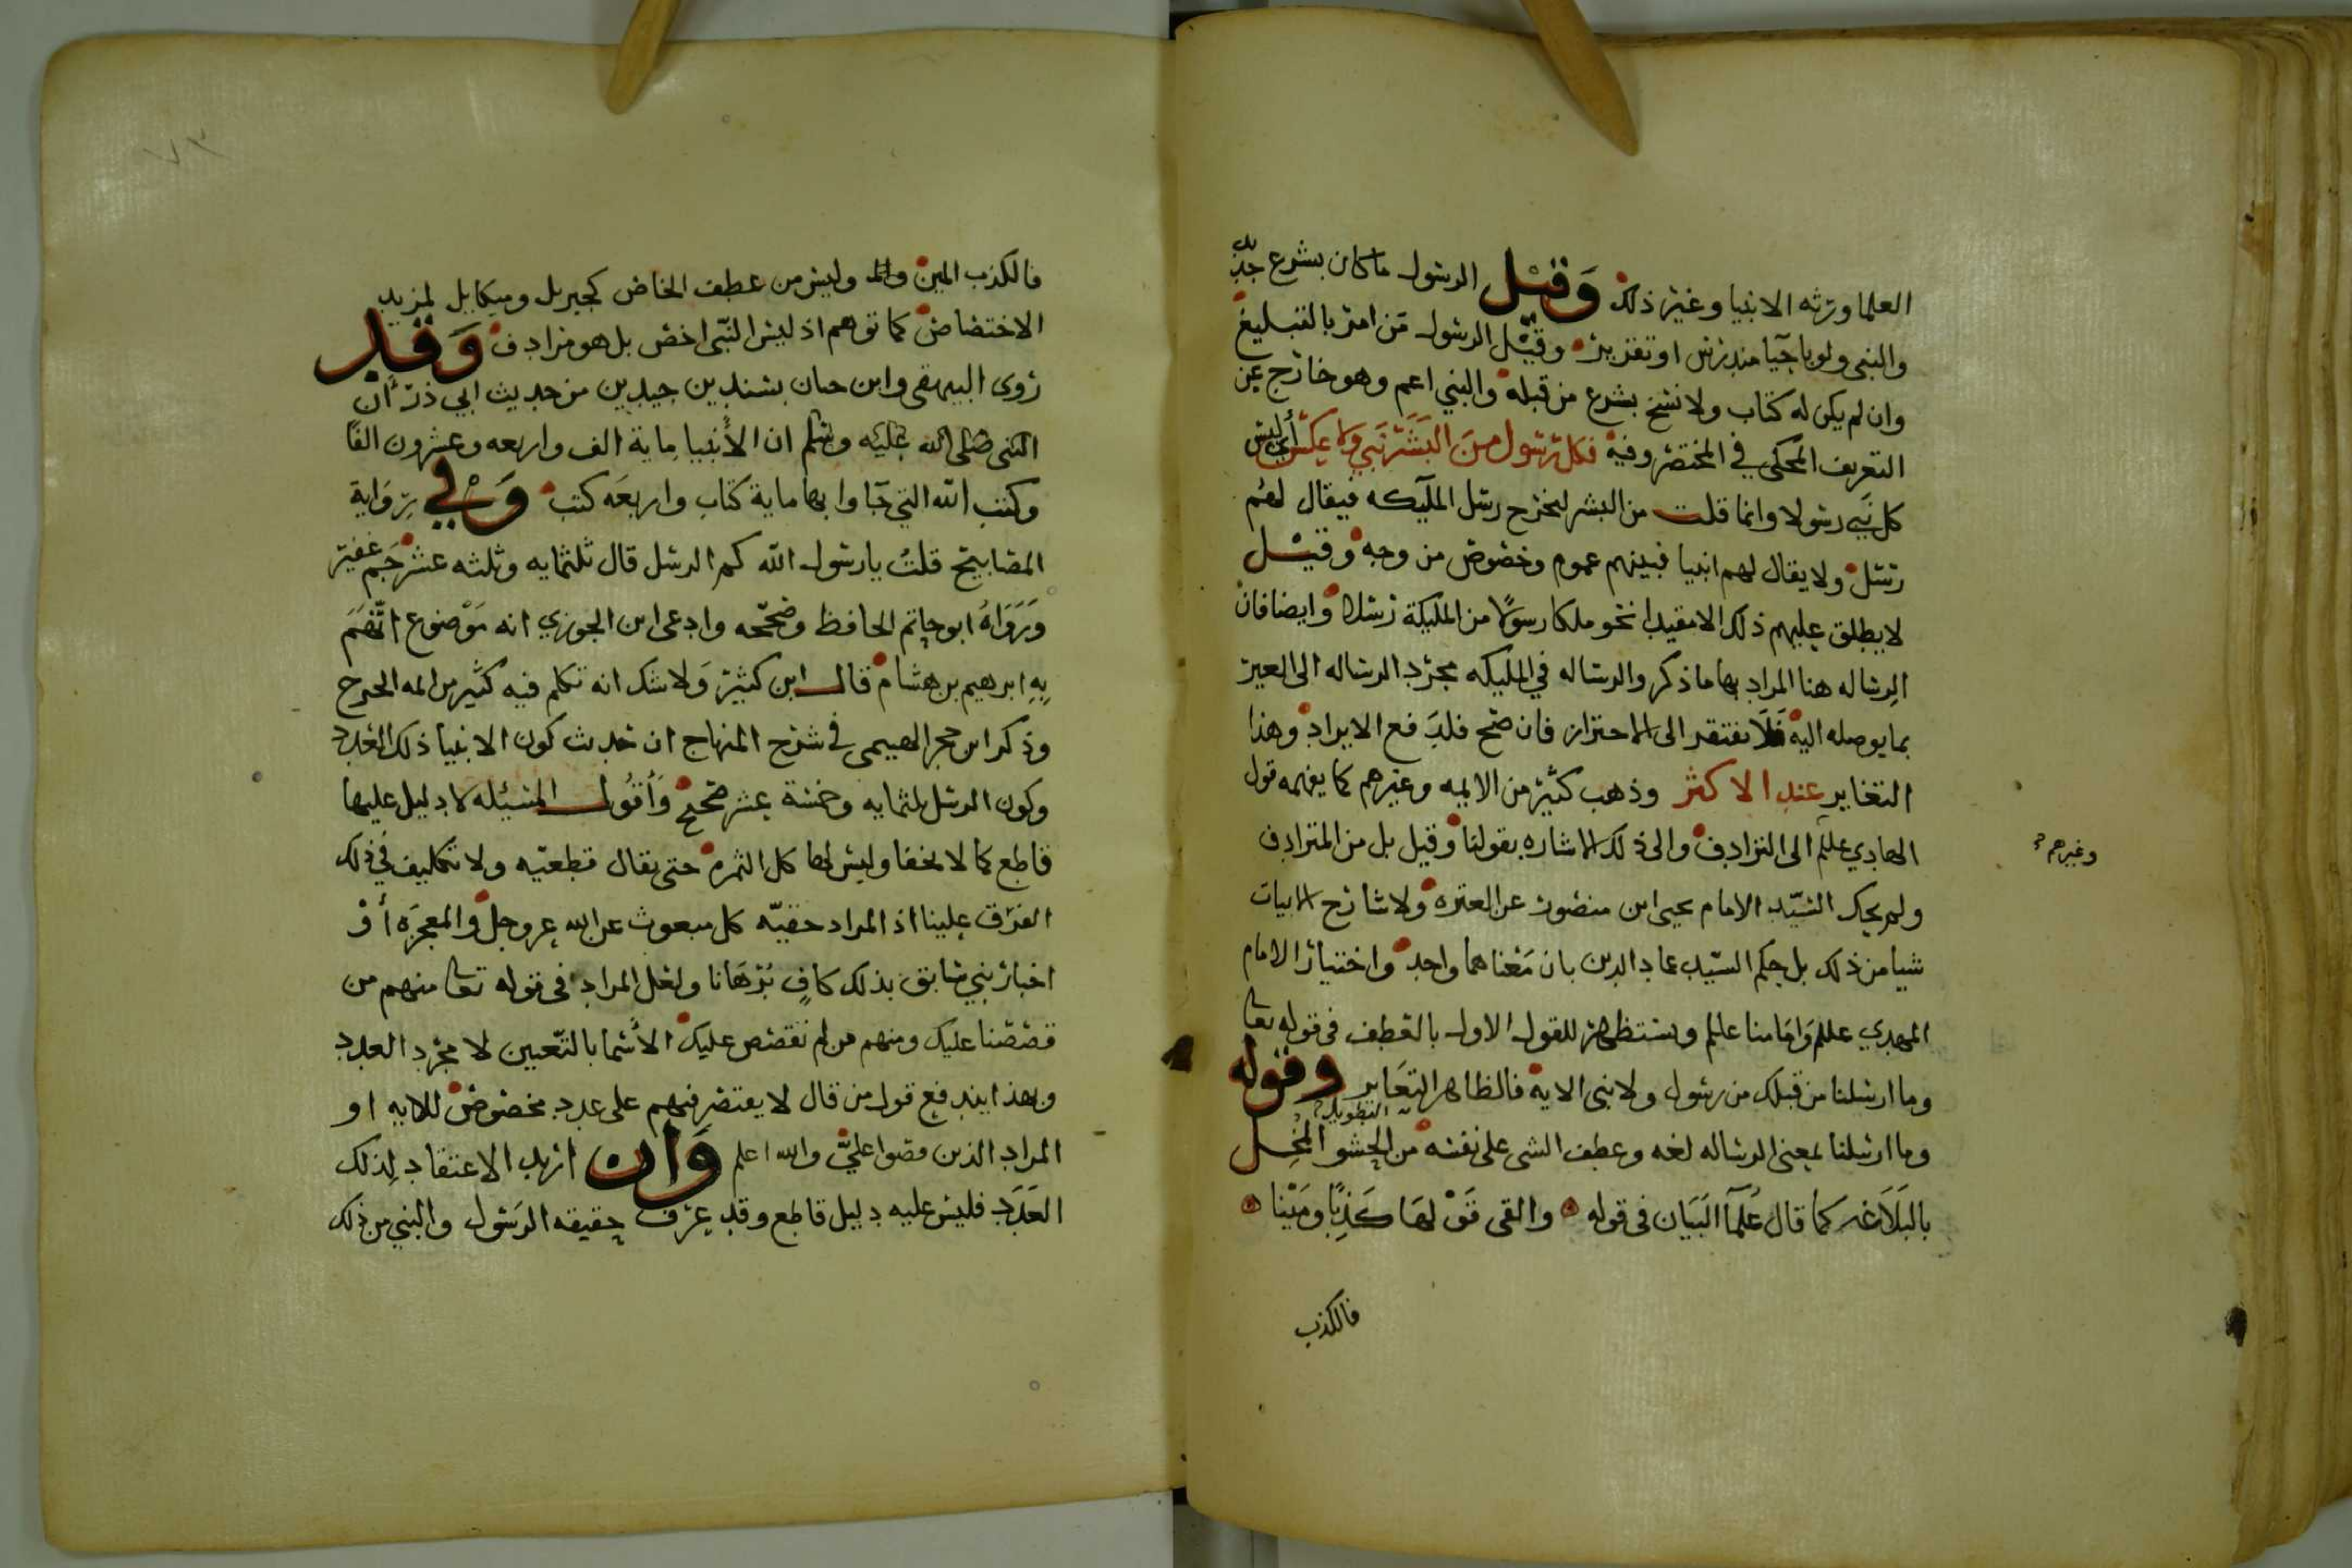 العلما ورثه الانبيا وغير ذلك وقيل الرسول ما كان بشرع جديد
والنبي ولو باحيا مندرس او تقرير وقيل الرسول من امر بالتبليغ
وان لم يكن له كتاب ولا نسخ بشرع من قبله والنبي اعم وهو خارج عن
التعريف المحكي في المختصر وفيه فكل رسول من البشر نبي ولا عكس أي ليس
كل نبي رسولا وانما قلت من البشر ليخرج رسل المليكه فيقال لهم
رسل ولا يقال لهم انبيا فبينهم عموم وخصوص من وجه وقيل
لا يطلق عليهم ذلك الا مقيدا نحو ملكا رسولا من المليكة رسلا وايضا فان
الرساله هنا المراد بها ما ذكر والرساله في المليكه مجرد الرساله الى الغير
بما يوصله اليه فلا نفتقر الى الاحتراز فان صح فلدفع الايراد وهذا
التغاير عند الاكثر وذهب كثير من الايمه وغيرهم كما يفهمه قول
الهادي علىلم الى الترادف والى ذلك الاشاره بقولنا وقيل بل من المترادف
وغيرهم
ولم يحك السيد الامام يحيى ابن منصور عن العتره ولا شارح الابيات
شيا من ذلك بل حكم السيد عماد الدين بان معناهما واحد واختيار الامام
المهدي علىلم وامامنا علىلم ويستظهر للقول الاول بالعطف في قوله تعا
وما ارسلنا من قبلك من رسول ولا نبى الاية فالظاهر التغاير وقوله
وما ارسلنا لمعنى الرساله لغه وعطف الشى على نفسه من الحشو التطويل المخل
بالبلاغه كما قال علما البيان في قوله والقى قولها كذبا ومينا
فالكذب
فالكذب المين وليس من عطف الخاص كجبريل وميكايل لمزيد
الاختصاص كما توهم اذ ليس النبي اخص بل هو مرادف وقد
روى البيهقى وابن حبان بسندين جيدين من حديث ابي ذر أن
النبى صلى الله عليه وسلم ان الأنبيا ماية الف واربعه وعشرون الفا
وكتب الله التي جاوا بها ماية كتاب واربعه كتب وفي رواية
المصابيح قلت يا رسول الله كم الرسل قال ثلثمايه وثلثه عشر جم غفير
ورواه ابو حاتم الحافظ وصححه وادعى ابن الجوزي انه موضوع اتهم
به ابرهيم بن هشام قال ابن كثير ولا شك انه تكلم فيه كثير من ايمه الجرح
وذكر ابن حجر الهيتمي في شرح المنهاج ان حديث كون الانبيا ذلك العدد
وكون الرسل ثلثمايه وخمسة عشر صحيح وأقول المسئله لا دليل عليها
قاطع كما لا يخفا وليس لها كل الثمره حتى يقال قطعيه ولا تكليف في ذلك
الفرق علينا اذ المراد حقيه كل مبعوث عن الله عز وجل والمعجزه أو
اخبار نبي سابق بذلك كاف برهانا ولعل المراد في قوله تعا منهم من
قصصنا عليك ومنهم من لم نقصص عليك الأسما بالتعيين لا مجرد العدد
وبهذا يندفع قول من قال لا يقتصر فيهم على عدد مخصوص للايه او
المراد الذين قصوا علي والله اعلم وان اريد الاعتقاد لذلك
العدد فليس عليه دليل قاطع وقد عرف حقيقه الرسول والنبي من ذلك